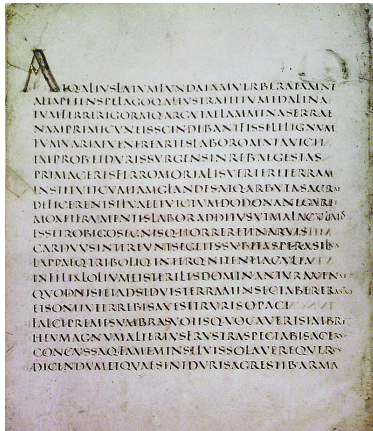 ATQALIVSLATVMFVNDAIAMVERBERATAMNE
ALTAPETENSPELAGOQALIVSTRAHITVMIDALINA
TVMFERRIRIGORATQARGVTAELAMMINASERRAE
NAMPRIMICVNEISSCINDEBANTFISSILELIGNVM
TVMVARIAEVENEREARTESLABOROMNIAVICIT
IMPROBVSETDVRISVRGENSINREBVSEGESTAS
PRIMACERESFERROMORTALISVERTERETERRAM
INSTITVITCVMIAMGLANDESATQARBVTASACRAE
DEFICERENTSILVAEETVICTVMDODONANEGARET
MOXETFRVMENTISLABORADDITVSVTMALACVLMOS
ESSETROBIGOSEGNISQHORRERETINARVIS
CARDVVSINTEREVNTSEGETESSVBITASPERASILVA
LAPPAEQTRIBOLIQINTERQNITENTIACVLTA
INFELIXLOLIVMETSTERILESDOMINANTVRAVENAE
QVODNISIETADSIDVISTERRAMINSECTABERERASTRIS
ETSONITVTERREBISAVESETRVRISOPACI
FALCEPREMESVMBRASVOTISQVOCAVERISIMBRE
HEVMAGNVMALTERIVSFRVSTRASPECTABISACERV
CONCVSSAQFAMEMINSILVISSOLAVEREQVERCV
DICENDVMETQVAESINTDVRISAGRESTIBARMA